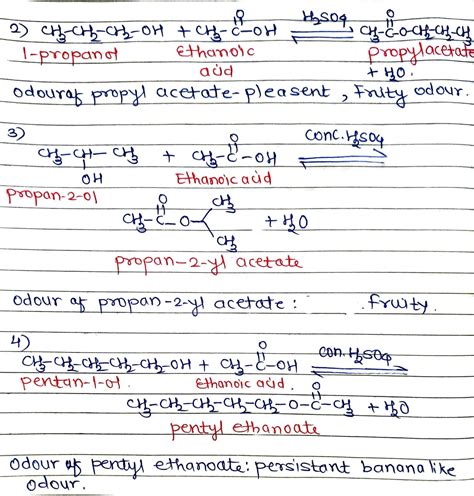 O
O
2) CH₃-CH₂-CH₂-OH + CH₃-C-OH H₂SO₄ CH₃-C-O-CH₂-CH₂-CH₃
1-propanol Ethanoic acid propylacetate
+ H₂O.
odour of propyl acetate-pleasent, Fruity odour.
3)
O conc. H₂SO₄
CH₃-CH-CH₃ + CH₃-C-OH
OH Ethanoic acid
propan-2-ol
O CH₃
CH₃-C-O + H₂O
CH₃
propan-2-yl acetate
odour of propan-2-yl acetate: fruity.
4)
O con. H₂SO₄
CH₃-CH₂-CH₂-CH₂-CH₂-OH + CH₃-C-OH
pentan-1-ol. Ethanoic acid.
O
CH₃-CH₂-CH₂-CH₂-CH₂-O-C-CH₃ + H₂O
pentyl ethanoate
odour of pentyl ethanoate: persistant banana like
odour.